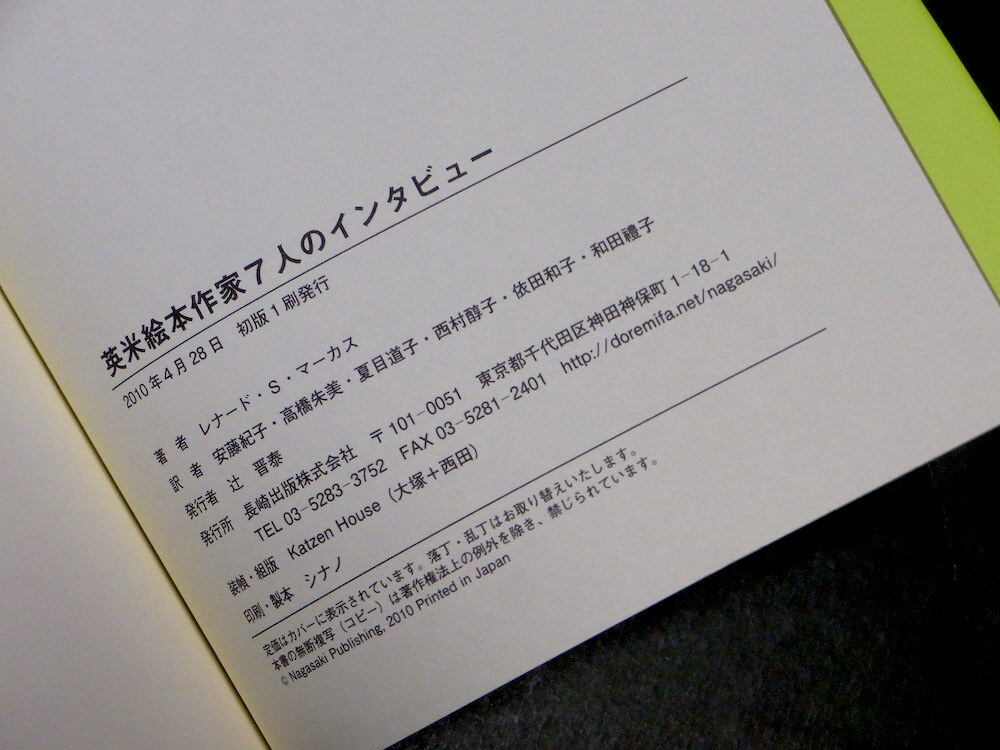 英米絵本作家7人のインタビュー
2010年4月28日　初版1刷発行
著　者　レナード・S・マーカス
訳　者　安藤紀子・高橋朱美・夏目道子・西村醇子・依田和子・和田禮子
発行者　辻　晋泰
発行所　長崎出版株式会社　〒101-0051　東京都千代田区神田神保町1-18-1
TEL 03-5283-3752　FAX 03-5281-2401　http://doremifa.net/nagasaki/
装幀・組版　Katzen House（大塚＋西田）
印刷・製本　シナノ
定価はカバーに表示されています。落丁・乱丁はお取り替えいたします。
本書の無断複写（コピー）は著作権法上の例外を除き、禁じられています。
© Nagasaki Publishing, 2010 Printed in Japan